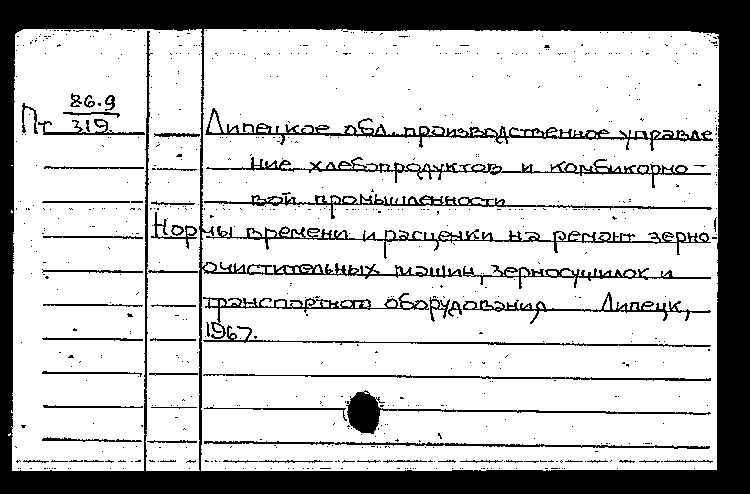 Пт 86.9
319
Липецкое обл. производственное управле
ние хлебопродуктов и комбикормо-
вой промышленности
Нормы времени и расценки на ремонт зерно-
очистительных машин, зерносушилок и
транспортного оборудования Липецк,
1967.